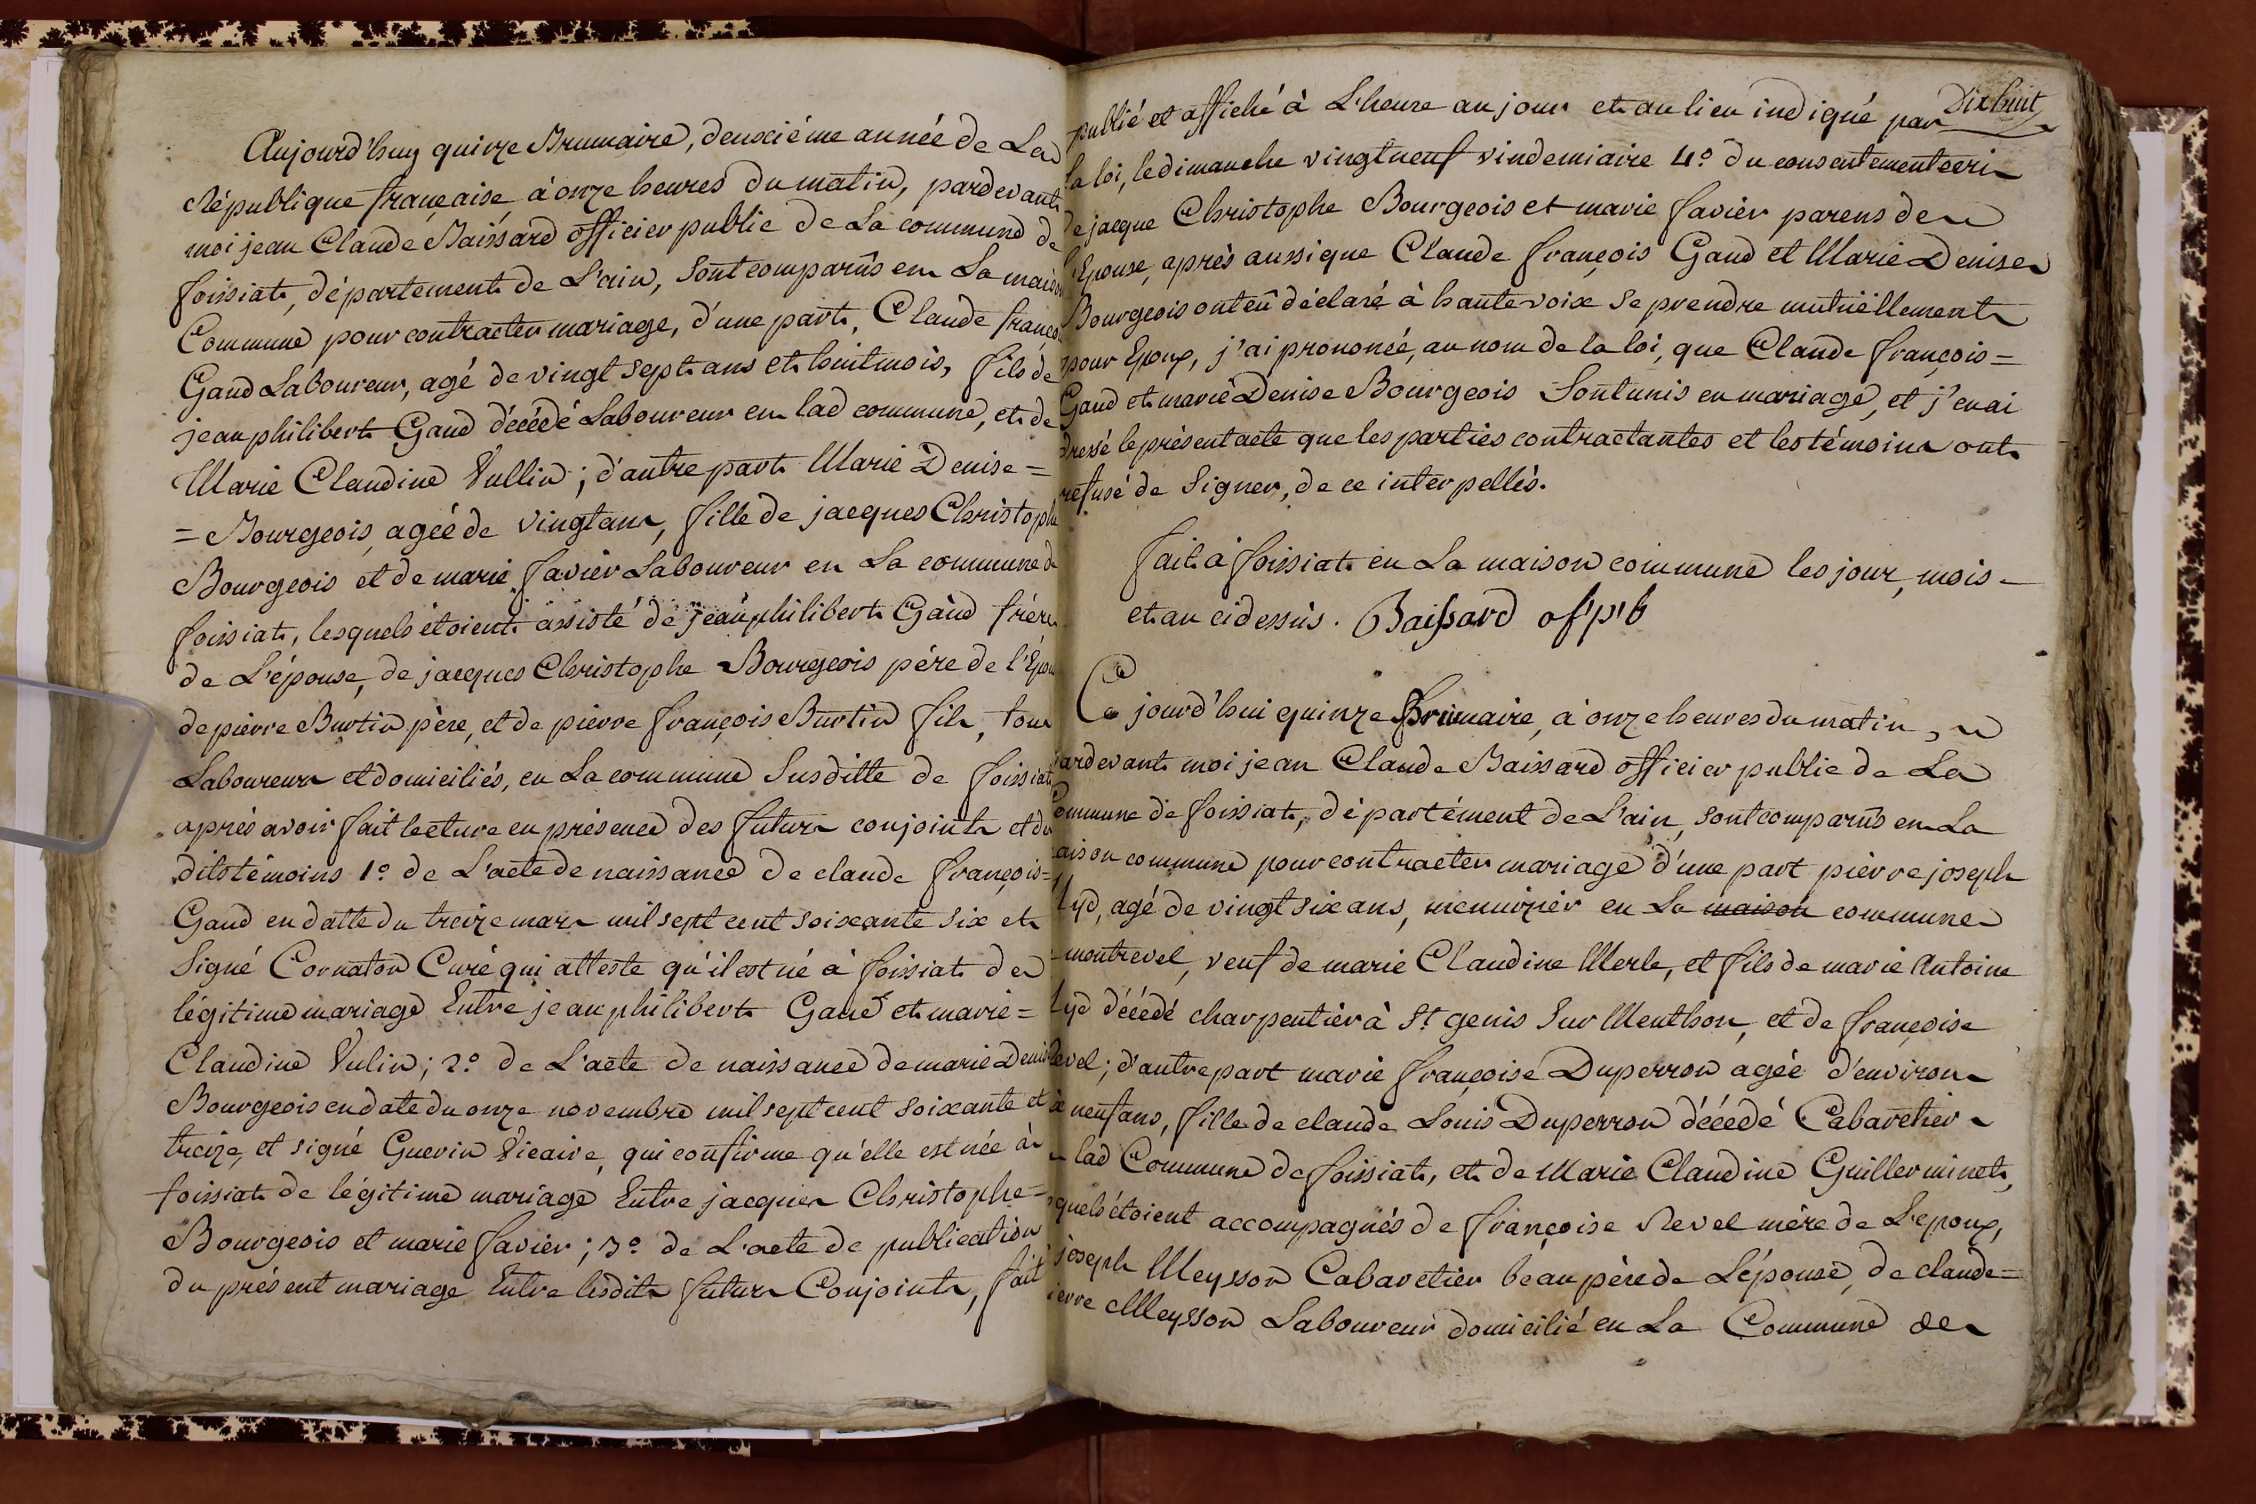 Aujourd'huy quinze Brumaire, deuxiéme année de La
République française, à onze heures du matin, pardevant
moi jean Claude Baissard officier public de La commune de
foissiat, département de L'ain, sont comparûs en La maison
Commune pour contracter mariage, d'une part, Claude françois
Gaud Laboureur, agé de vingt sept ans et huit mois, fils de
jean philibert Gaud décédé Laboureur en lad commune, et de
Marie Claudine Vullin; d'autre part Marie Denise =
= Bourgeois, agée de vingt ans, fille de jacques Christophe
Bourgeois et de marie favier Laboureur en La commune de
foissiat, lesquels étoient assisté de jean philibert Gaud frère
de L'épouse, de jacques Christophe Bourgeois pére de l'Epouse
de pierre Burtin père, et de pierre françois Burtin fils, tous
Laboureurs et domiciliés, en La commune Susditte de foissiat
après avoir fait lecture en présence des futurs conjoints et des
dits témoins 1º de L'acte de naissance de claude françois =
Gaud en datte du treize mars mil sept cent soixante six et
Signé Cornaton Curé qui atteste qu'il est né à foissiat de
légitime mariage Entre jean philibert Gaud et marie =
Claudine Vulin; 2º de L'acte de naissance de marie Denise
Bourgeois en date du onze novembre mil sept cent soixante et
treize, et signé Guerin Vicaire, qui confirme qu'elle est née à
foissiat de légitime mariage Entre jacques Christophe =
Bourgeois et marie favier; 3º de L'acte de publication
du présent mariage Entre lesdits futurs Conjoints, fait
Dixhuit
publié et affiché à L'heure au jour et au lieu indiqué par
la loi, le dimanche vingt neuf vindemiaire 4º du consentement écrit
de jacque Christophe Bourgeois et marie favier parens de
l'Epouse, après aussi que Claude françois Gaud et Marie Denise
Bourgeois ont eû déclaré à haute voix se prendre mutuëllement
pour Epoux, j'ai prononcé, au nom de la loi, que Claude françois =
Gaud et marie Denise Bourgeois Sont unis en mariage, et j'en ai
dressé le présent acte que les parties contractantes et les témoins ont
refusé de Signer, de ce interpellés.
fait à foissiat en La maison commune les jour, mois
et an cidessus. Baissard of p b
Ce jourd'hui quinze Brumaire, à onze heures du matin,
pardevant moi jean Claude Baissard officier public de La
Commune de foissiat, département de L'ain, sont comparûs en La
maison commune pour contracter mariage d'une part pierre joseph
Lyd, agé de vingt six ans, menuizier en La maison commune
montrevel, veuf de marie Claudine Merle, et fils de marie Antoine
Lyd décédé charpentier à St genis Sur Menthon, et de françoise
Revel; d'autre part marie françoise Duperron agée d'environ
dix neuf ans, fille de claude Louis Duperron décédé Cabaretier
lad Commune de foissiat, et de Marie Claudine Guillerminet,
lesquels étoient accompagnés de françoise Revel mère de L'epoux,
joseph Meysson Cabaretier beau père de L'épouse, de claude =
pierre Meysson Laboureur domicilié en La Commune de